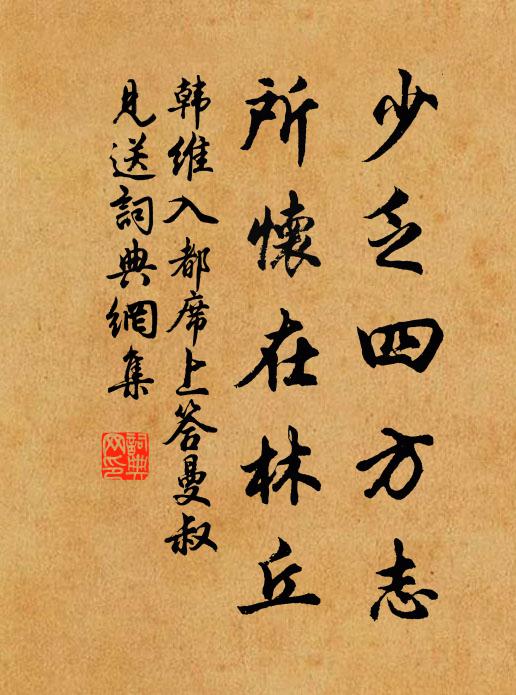 少乏四方志
所懷在林丘
韩維入都席上答曼叔
見送詞典網集
詞典网印